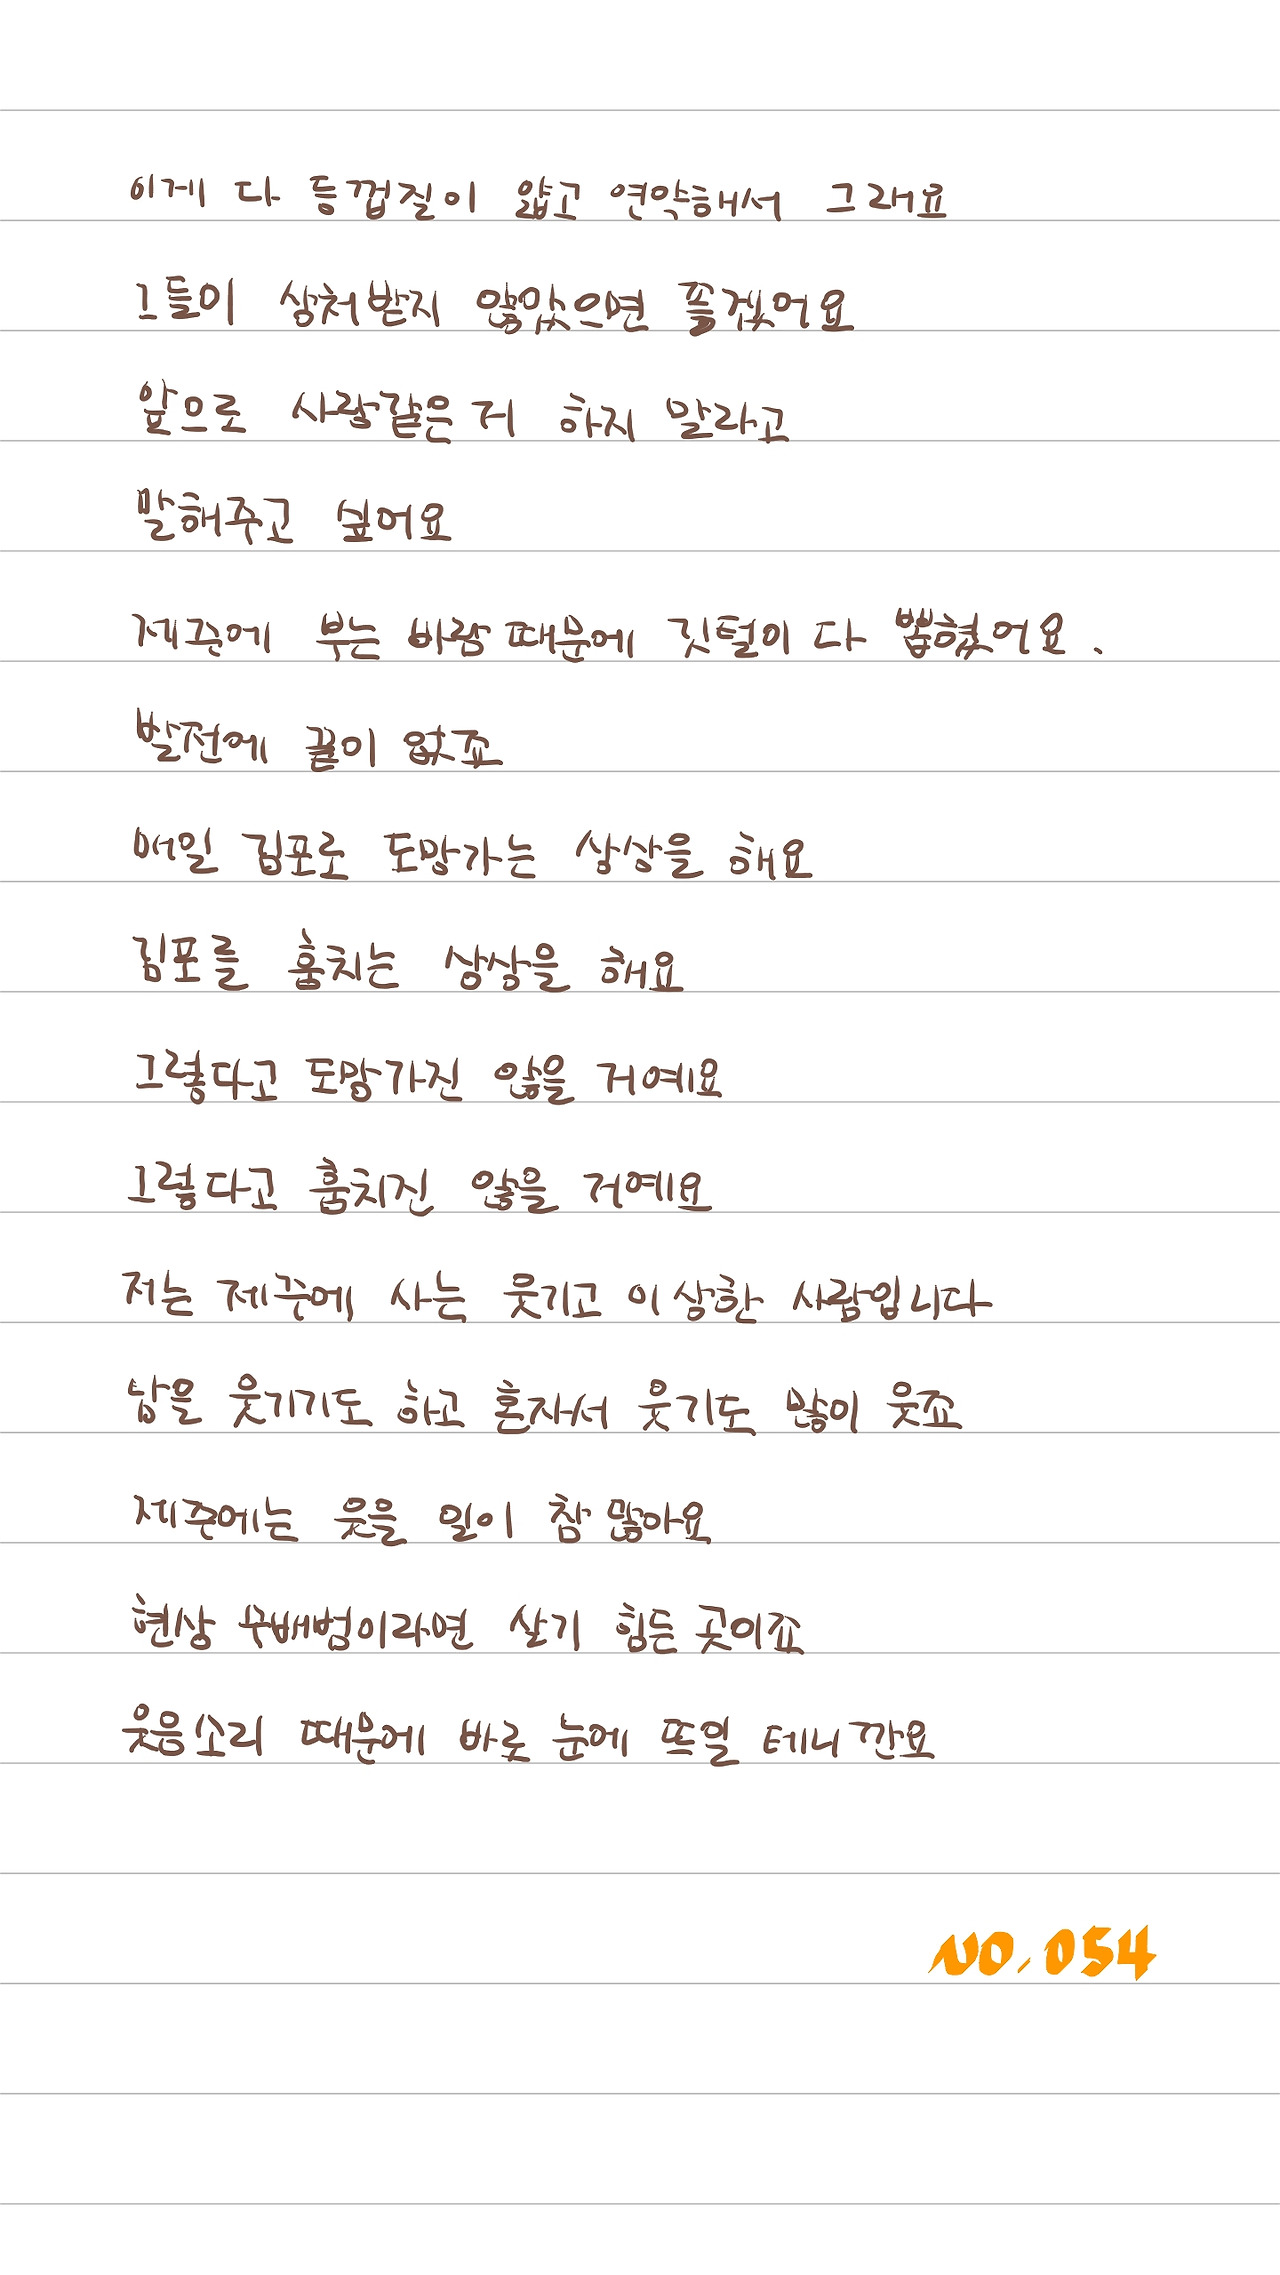 이게 다 등껍질이 얇고 연약해서 그래요
그들이 상처받지 않았으면 좋겠어요
앞으로 사랑같은 거 하지 말라고
말해주고 싶어요
제주에 부는 바람 때문에 깃털이 다 뽑혔어요.
발전에 끝이 없죠
매일 김포로 도망가는 상상을 해요
김포를 훔치는 상상을 해요
그렇다고 도망가진 않을 거예요
그렇다고 훔치진 않을 거예요
저는 제주에 사는 웃기고 이상한 사람입니다
남을 웃기기도 하고 혼자서 웃기도 많이 웃죠
제주에는 웃을 일이 참 많아요
현상 수배범이라면 살기 힘든 곳이죠
웃음소리 때문에 바로 눈에 뜨일 테니깐요
NO.054